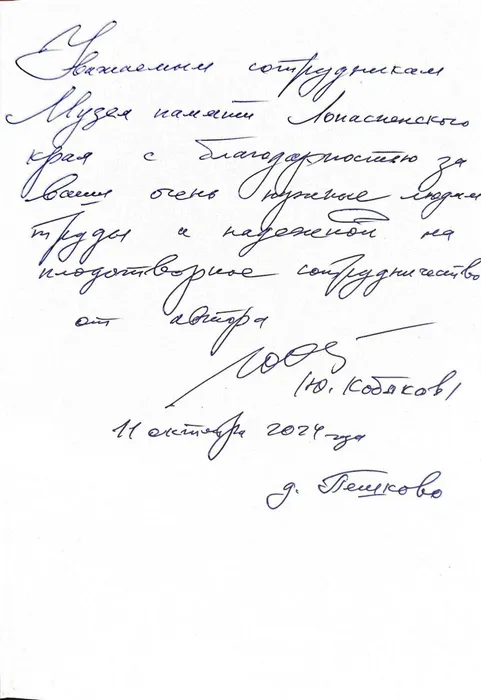 Уважаемым сотрудникам
Музея памяти Лопасненского
края с благодарностью за
ваши очень нужные людям
труды и надеждой на
плодотворное сотрудничество
от автора
(Ю. Кобяков)
11 октября 2024 года
д. Пешково